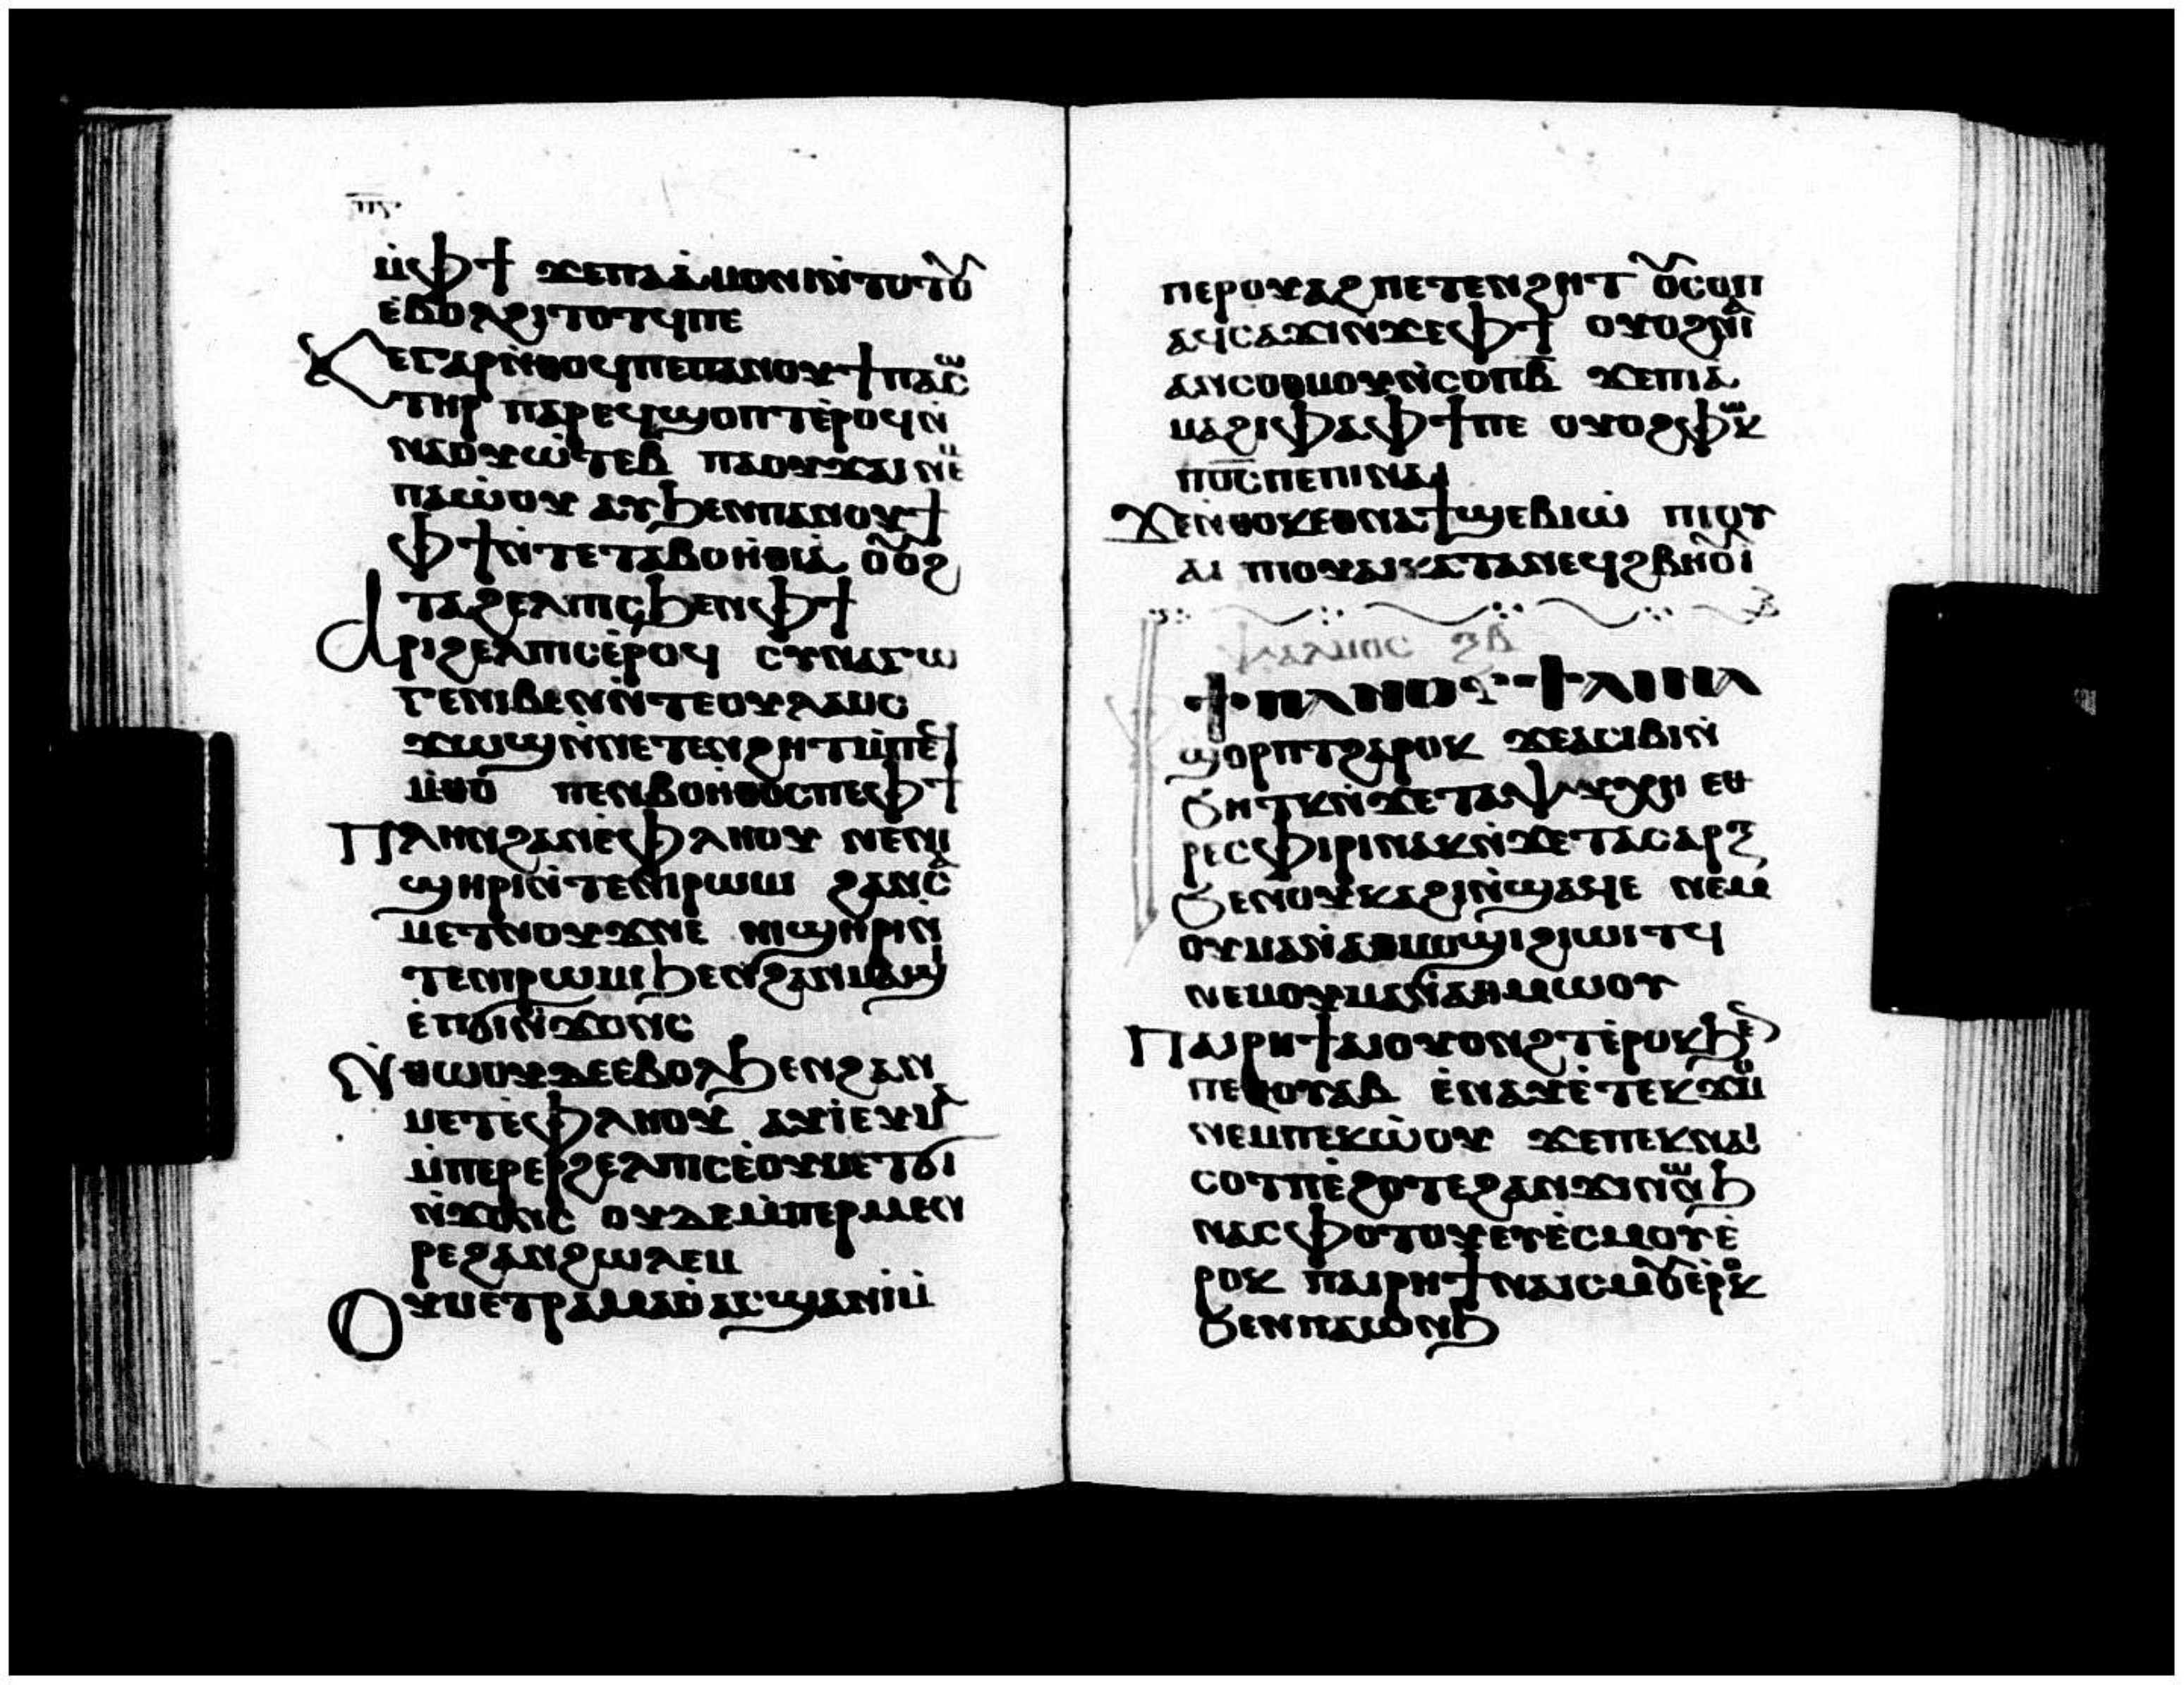 ⲡ︦ⲋ︦
ⲙ̀ⲫϯ ϫⲉⲡⲁⲁ̀ⲙⲟⲛⲓⲛ̀ⲧⲟⲧⲟⲩ
ⲉ̀ⲃⲟⲗϩⲓⲧⲟⲧϥⲡⲉ
Ϫⲉⲅⲁⲣⲛ̀ⲑⲟϥⲡⲉⲡⲁⲛⲟⲩϯⲡⲁⲥⲱ
ⲧⲏⲣ ⲡⲁⲣⲉϥϣⲟⲡⲧⲉ̀ⲣⲟϥⲛ̀
ⲛⲁⲟⲩⲱ̀ⲧⲉⲃ ⲡⲁⲟⲩϫⲁⲓ ⲛⲉⲙ
ⲡⲁⲱ̀ⲟⲩ ⲁⲩϧⲉⲛⲡⲁⲛⲟⲩϯ
ⲫϯⲛ̀ⲧⲉⲧⲁⲃⲟⲏ̀ⲑⲓⲁ̀ ⲟⲩⲟϩ
ⲧⲁϩⲉⲗⲡⲓⲥϧⲉⲛⲫϯ
Ⲁⲣⲓϩⲉⲗⲡⲓⲥⲉ̀ⲣⲟϥ ⲥⲩⲛⲁⲅⲱ
ⲅⲉⲛⲓⲃⲉⲛⲛ̀ⲧⲉⲟⲩⲗⲁⲟⲥ
ϫⲱϣⲛ̀ⲛⲉⲧⲉⲛϩⲏⲧⲙ̀ⲡⲉϥ
ⲙ̀ⲑⲟ ⲡⲉⲛⲃⲟⲏ̀ⲑⲟⲥⲡⲉⲫϯ
Ⲡⲗⲏⲛϩⲁⲛⲉ̀ⲫⲗⲏⲟⲩ ⲛⲉⲛⲓ
ϣⲏⲣⲓⲛ̀ⲧⲉⲛⲓⲣⲱⲙⲓ ϩⲁⲛⲥⲁ
ⲙⲉⲧⲛⲟⲩϫⲛⲉ ⲛⲓϣⲏⲣⲓⲛ̀
ⲧⲉⲛⲓⲣⲱⲙⲓϧⲉⲛϩⲁⲛⲙⲁϣⲓ
ⲉ̀ⲡϭⲓⲛ̀ϫⲟⲛⲥ
Ⲛ̀ⲑⲱⲟⲩⲇⲉⲉ̀ⲃⲟⲗϧⲉⲛϩⲁⲛ
ⲙⲉⲧⲉ̀ⲫⲗⲏⲟⲩ ⲁⲩⲓ̀ⲉⲩⲙⲁ
ⲙ̀ⲡⲉⲣⲉⲣϩⲉⲗⲡⲓⲥⲉ̀ⲟⲩⲙⲉⲧϭⲓ
ⲛ̀ϫⲟⲛⲥ ⲟⲩⲇⲉⲙ̀ⲡⲉⲣⲙⲉⲛ
ⲣⲉϩⲁⲛϩⲱⲗⲉⲙ
Ⲟⲩⲙⲉⲧⲣⲁⲙⲁⲟ̀ⲁⲥϣⲁⲛⲓ̀ⲙ̀
ⲡⲉⲣⲟⲩⲁϩⲡⲉⲧⲉⲛϩⲏⲧ ⲟⲩⲥⲟⲡ
ⲁϥⲥⲁϫⲓⲛ̀ϫⲉⲫϯ ⲟⲩⲟϩⲛⲁⲓ
ⲁⲓⲥⲟⲑⲙⲟⲩⲛ̀ⲥⲟⲡⲃ̅ ϫⲉⲡⲓⲁ̀
ⲙⲁϩⲓⲫⲁⲫϯⲡⲉ ⲟⲩⲟϩⲫⲱⲕ
ⲡⲟ̅ⲥ̅ⲡⲉⲡⲓⲛⲁⲓ
Ϫⲉⲛ̀ⲑⲟⲕⲉⲑⲛⲁϯϣⲉⲃⲓⲱ̀ ⲡⲓⲟⲩ
ⲁⲓ ⲡⲓⲟⲩⲁⲓⲕⲁⲧⲁⲛⲉϥϩⲃⲏⲟⲩⲓ̀
ⲯⲁⲗⲙⲟⲥ ⲝⲃ
Ⲫϯⲡⲁⲛⲟⲩϯⲁⲓⲛⲁ
ϣⲟⲣⲡⲧϩⲁⲣⲟⲕ ϫⲉⲁⲥⲓⲃⲓⲛ̀
ϧⲏⲧⲕⲛ̀ϫⲉⲧⲁⲯⲩⲭⲏ ⲉⲑ
ⲣⲉⲥⲫⲓⲣⲓⲛⲁⲕⲛ̀ϫⲉⲧⲁⲥⲁⲣⲝ
ϧⲉⲛⲟⲩⲕⲁϩⲓⲛ̀ϣⲁϥⲉ ⲛⲉⲙ
ⲟⲩⲙⲁⲛ̀ⲁⲑⲙⲟϣⲓϩⲓⲱⲓⲧϥ
ⲛⲉⲙⲟⲩⲙⲁⲛ̀ⲁⲑⲙⲱⲟⲩ
Ⲡⲁⲓⲣⲏϯⲁⲓⲟⲩⲟⲛϩⲧⲉ̀ⲣⲟⲕϧⲉⲛ
ⲡⲉⲑⲟⲩⲁⲃ ⲉ̀ⲛⲁⲩⲉ̀ⲧⲉⲕϫⲟⲙ
ⲛⲉⲙⲡⲉⲕⲱ̀ⲟⲩ ϫⲉⲡⲉⲕⲛⲁⲓ
ⲥⲟⲧⲡⲉ̀ϩⲟⲧⲉϩⲁⲛϫⲓⲛⲱⲛϧ
ⲛⲁⲥⲫⲟⲧⲟⲩⲉⲩⲉ̀ⲥⲙⲟⲩⲉ̀
ⲣⲟⲕ ⲡⲁⲓⲣⲏϯⲛⲁⲓⲥⲙⲟⲩⲉ̀ⲣⲟⲕ
ϧⲉⲛⲡⲁⲱⲛϧ